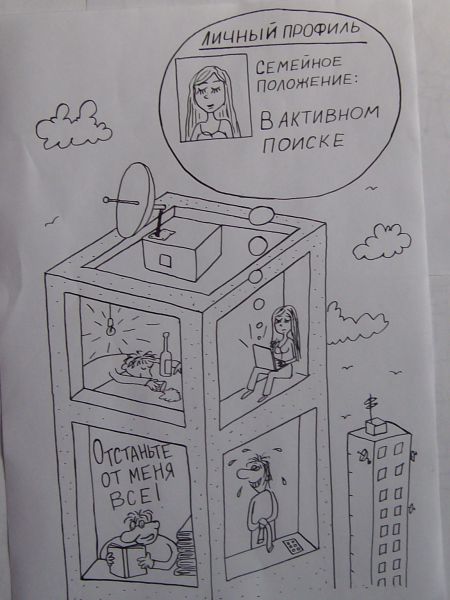 ЛИЧНЫЙ ПРОФИЛЬ
СЕМЕЙНОЕ
ПОЛОЖЕНИЕ:
В АКТИВНОМ
ПОИСКЕ
ОТСТАНЬТЕ
ОТ МЕНЯ
ВСЕ!